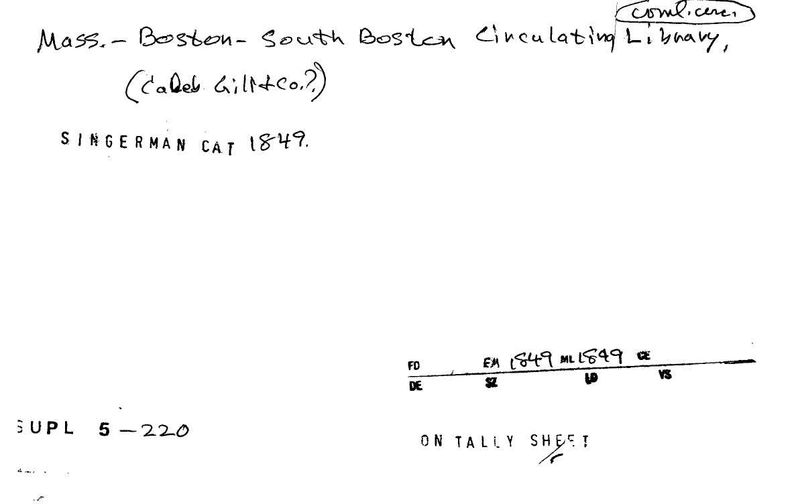 coml. circ.
Mass. - Boston - South Boston Circulating Library,
(Caleb Gill & Co.?)
SINGERMAN CAT 1849.
FD EM 1849 ML 1849 CE
DE SZ LD VS
SUPL 5 - 220
ON TALLY SHEET